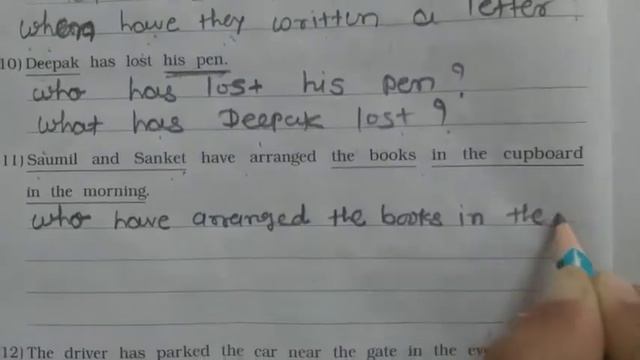 when have they written a letter
10) Deepak has lost his pen.
who has lost his pen?
what has Deepak lost?
11) Saumil and Sanket have arranged the books in the cupboard
in the morning.
who have arranged the books in the
12) The driver has parked the car near the gate in the